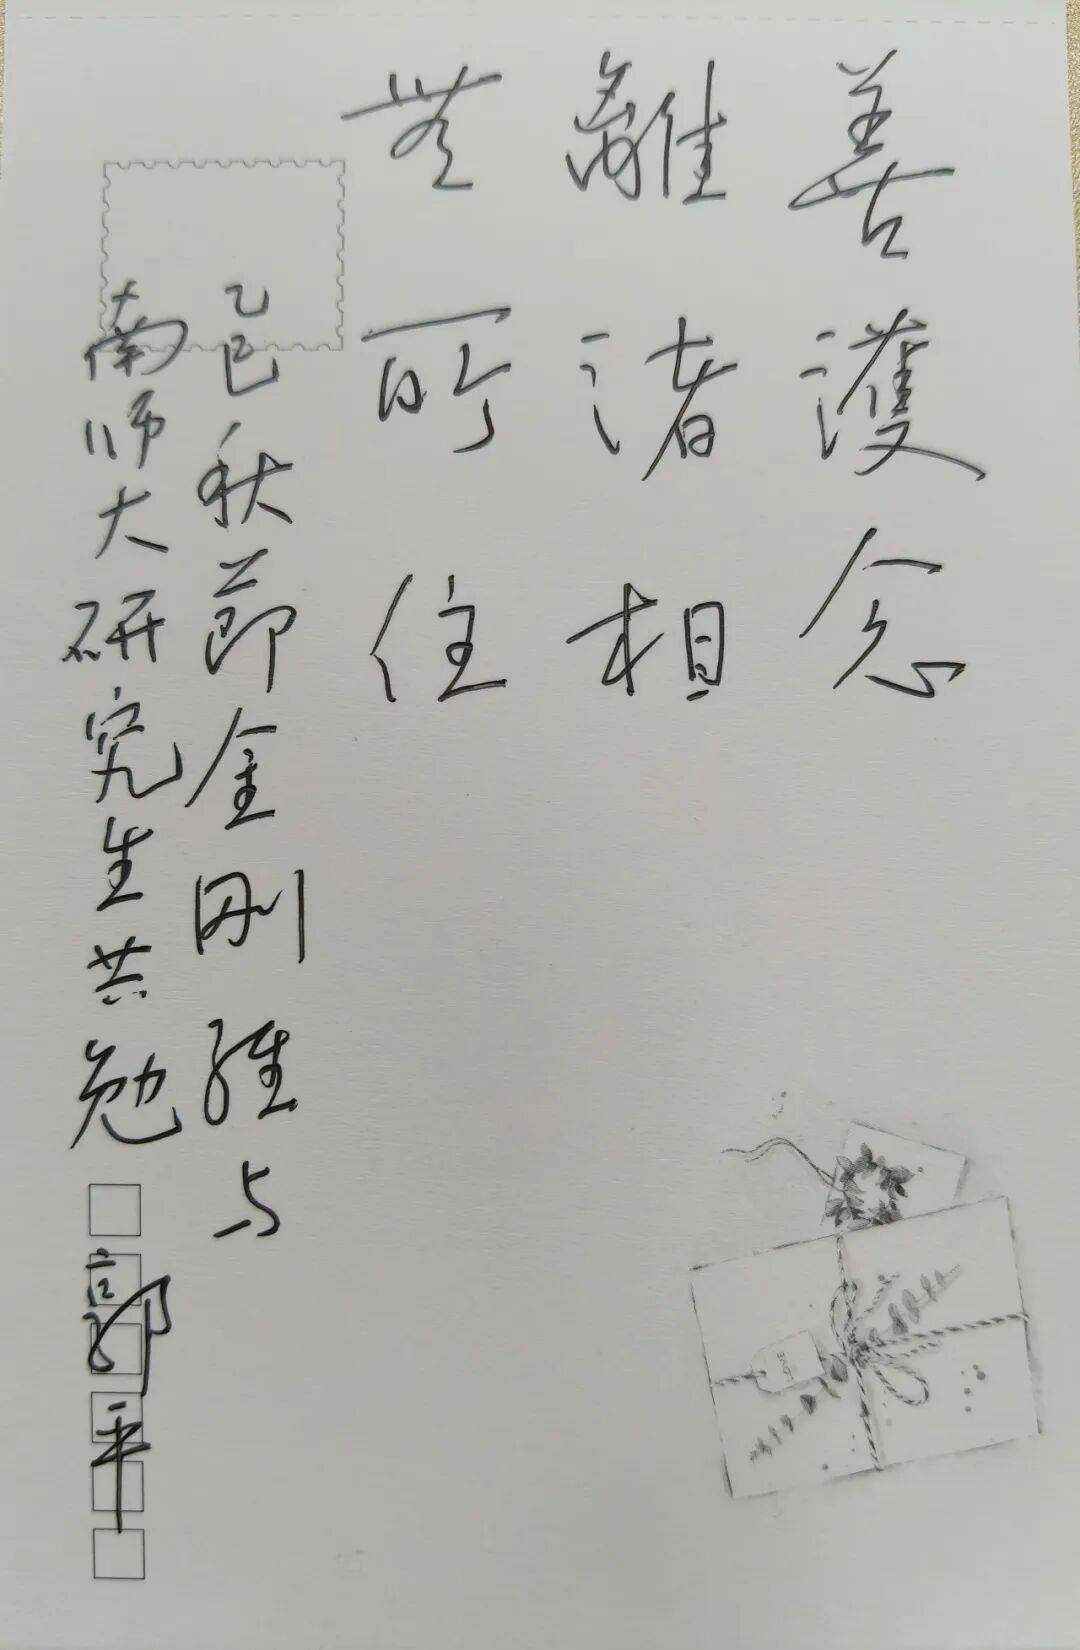 善護念
離諸相
無所住
乙巳秋節金刚經与
南师大研究生共勉
郭平
LOVE